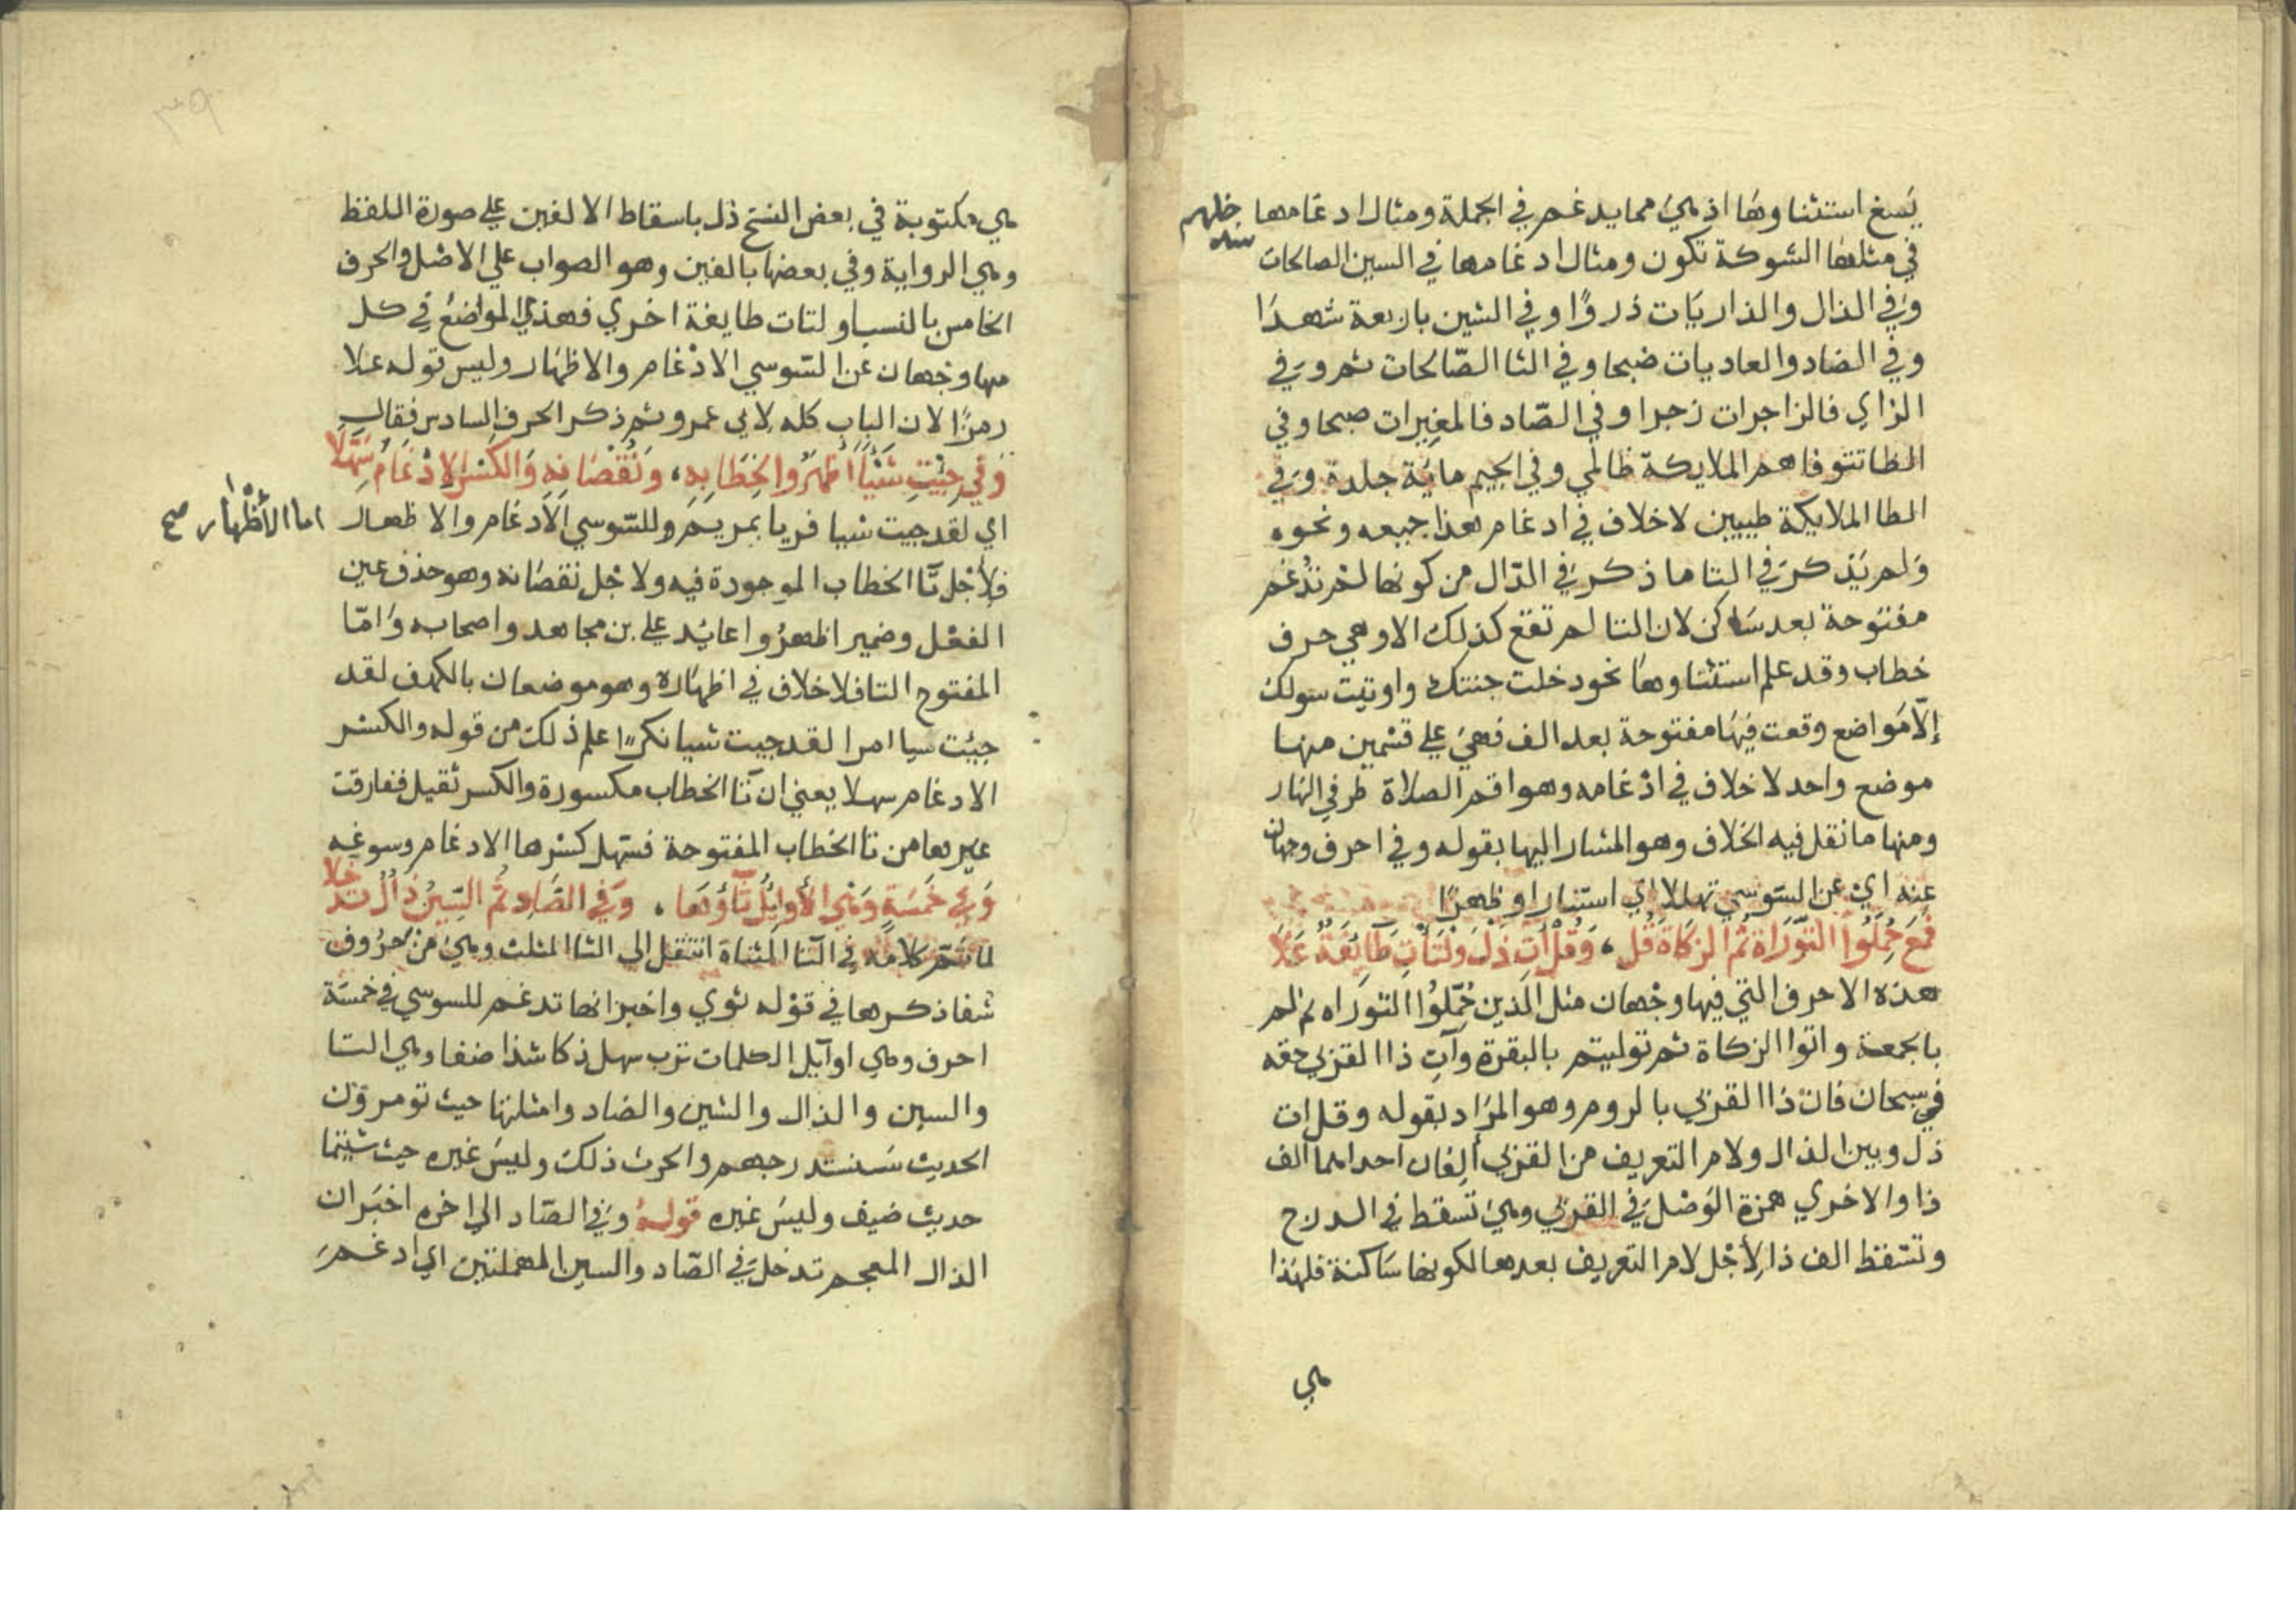 يسغ استثناوها اذ هي مما يدغم في الجملة ومثال ادغامها
في مثلها الشوكة تكون ومثال ادغامها في السين الصالحات سندخلهم
وفي الذال والذاريات ذروا وفي الشين باربعة شهدا
وفي الضاد والعاديات ضبحا وفي الثا الصالحات ثم وفي
الزاي فالزاجرات زجرا وفي الصاد فالمغيرات صبحا وفي
الظا تتوفاهم الملايكة ظالمي وفي الجيم ماية جلدة وفي
الطا الملايكة طيبين لا خلاف في ادغام هذا جميعه ونحوه
ولم يذكر في التا ما ذكر في الدال من كونها لم تدغم
مفتوحة بعد ساكن لان التا لم تقع كذلك الا وهي حرف
خطاب وقد علم استثناوها نحو دخلت جنتك واوتيت سولك
إلا مواضع وقعت فيها مفتوحة بعد الف فهي على قسمين منها
موضع واحد لا خلاف في ادغامه وهو اقم الصلاة طرفي النهار
ومنها ما نقل فيه الخلاف وهو المشار اليها بقوله وفي احرف وجهان
عنه اي عن السوسي تهللا اي استنارا وظهرا
فمع حُمِّلُوا التوراة ثم الزكاة قل ، وقل آت ذل ولتأت طآئفة علا
هذه الاحرف التي فيها وجهان مثل الذين حُمِّلُوا التوراه ثم لم
بالجمعة واتوا الزكاة ثم توليتم بالبقرة وآت ذا القربي حقه
في سبحان فات ذا القربي بالروم وهو المراد بقوله وقل ات
ذل وبين الذال ولام التعريف من القربي ألفان احداهما الف
ذا والاخري همزة الوصل في القربي وهي تسقط في الدرج
وتسقط الف ذا لأجل لام التعريف بعدها لكونها ساكنة فلهذا
هي
هي مكتوبة في بعض النسخ ذل باسقاط الالفين علي صورة اللفظ
وهي الرواية وفي بعضها بالفين وهو الصواب علي الاصل والحرف
الخامس بالنسا ولتات طايفة اخري فهذي المواضع في كل
منها وجهان عن السوسي الادغام والاظهار وليس قوله علا
رمزا لان الباب كله لابي عمرو ثم ذكر الحرف السادس فقال
وفي جئت شيئا أظهروا لخطابه ، ونقصانه والكسر الادغام سهلا
اي لقد جيت شيا فريا بمريم وللسوسي الادغام والاظهار اما الاظهار صح
فلأجل تا الخطاب الموجودة فيه ولاجل نقصانه وهو حذف عين
الفعل وضمير اظهروا عايد علي بن مجاهد واصحابه واما
المفتوح التا فلا خلاف في اظهاره وهو موضعان بالكهف لقد
جيئت سيا امرا لقد جيت شيا نكرا علم ذلك من قوله والكسر
الادغام سهلا يعني ان تآ الخطاب مكسورة والكسر ثقيل ففارقت
غيرها من تا الخطاب المفتوحة فسهل كسرها الادغام وسوغه
وفي خمسة وهي الأوايل ثآؤها ، وفي الصاد ثم السين ذال تدخلا
لما تم كلامه في التا المثناة انتقل الي الثا المثلث وهي من حروف
شفا ذكرها في قوله ثوي واخبر انها تدغم للسوسي في خمسة
احرف وهي اوايل الكلمات ترب سهل ذكا شذا ضفا وهي التا
والسين والذال والشين والضاد وامثلتها حيث تومرون
الحديث سنستدرجهم والحرث ذلك وليس غيره حيث شيتما
حديث ضيف وليس غيره قوله وفي الصاد الي اخره اخبر ان
الذال المعجم تدخل في الصاد والسين المهملتين اي ادغم